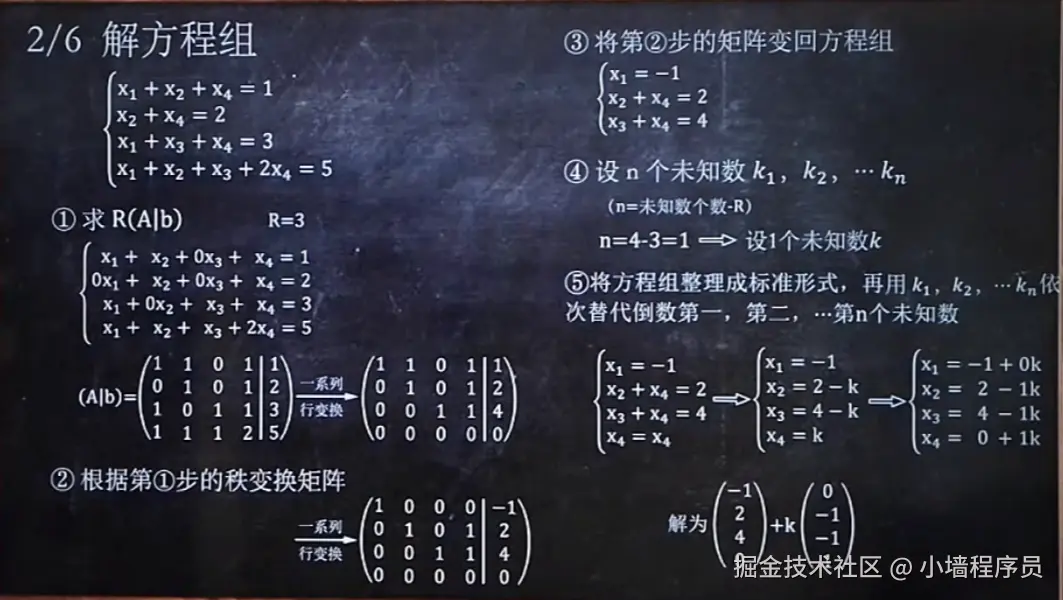 2/6 解方程组
x₁ + x₂ + x₄ = 1
x₂ + x₄ = 2
x₁ + x₃ + x₄ = 3
x₁ + x₂ + x₃ + 2x₄ = 5
① 求 R(A|b) R=3
x₁ + x₂ + 0x₃ + x₄ = 1
0x₁ + x₂ + 0x₃ + x₄ = 2
x₁ + 0x₂ + x₃ + x₄ = 3
x₁ + x₂ + x₃ + 2x₄ = 5
(A|b)=
1 1 0 1 | 1
0 1 0 1 | 2
1 0 1 1 | 3
1 1 1 2 | 5
一系列
行变换
1 1 0 1 | 1
0 1 0 1 | 2
0 0 1 1 | 4
0 0 0 0 | 0
② 根据第①步的秩变换矩阵
一系列
行变换
1 0 0 0 | −1
0 1 0 1 | 2
0 0 1 1 | 4
0 0 0 0 | 0
③ 将第②步的矩阵变回方程组
x₁ = −1
x₂ + x₄ = 2
x₃ + x₄ = 4
④ 设 n 个未知数 k₁，k₂，⋯ kₙ
(n=未知数个数-R)
n=4-3=1 ⇒ 设1个未知数k
⑤将方程组整理成标准形式，再用 k₁，k₂，⋯ kₙ依
次替代倒数第一，第二，⋯第n个未知数
x₁ = −1
x₂ + x₄ = 2
x₃ + x₄ = 4
x₄ = x₄
⇒
x₁ = −1
x₂ = 2 − k
x₃ = 4 − k
x₄ = k
⇒
x₁ = −1 + 0k
x₂ = 2 − 1k
x₃ = 4 − 1k
x₄ = 0 + 1k
解为
−1
2
4
+k
0
−1
−1
掘金技术社区 @ 小墙程序员